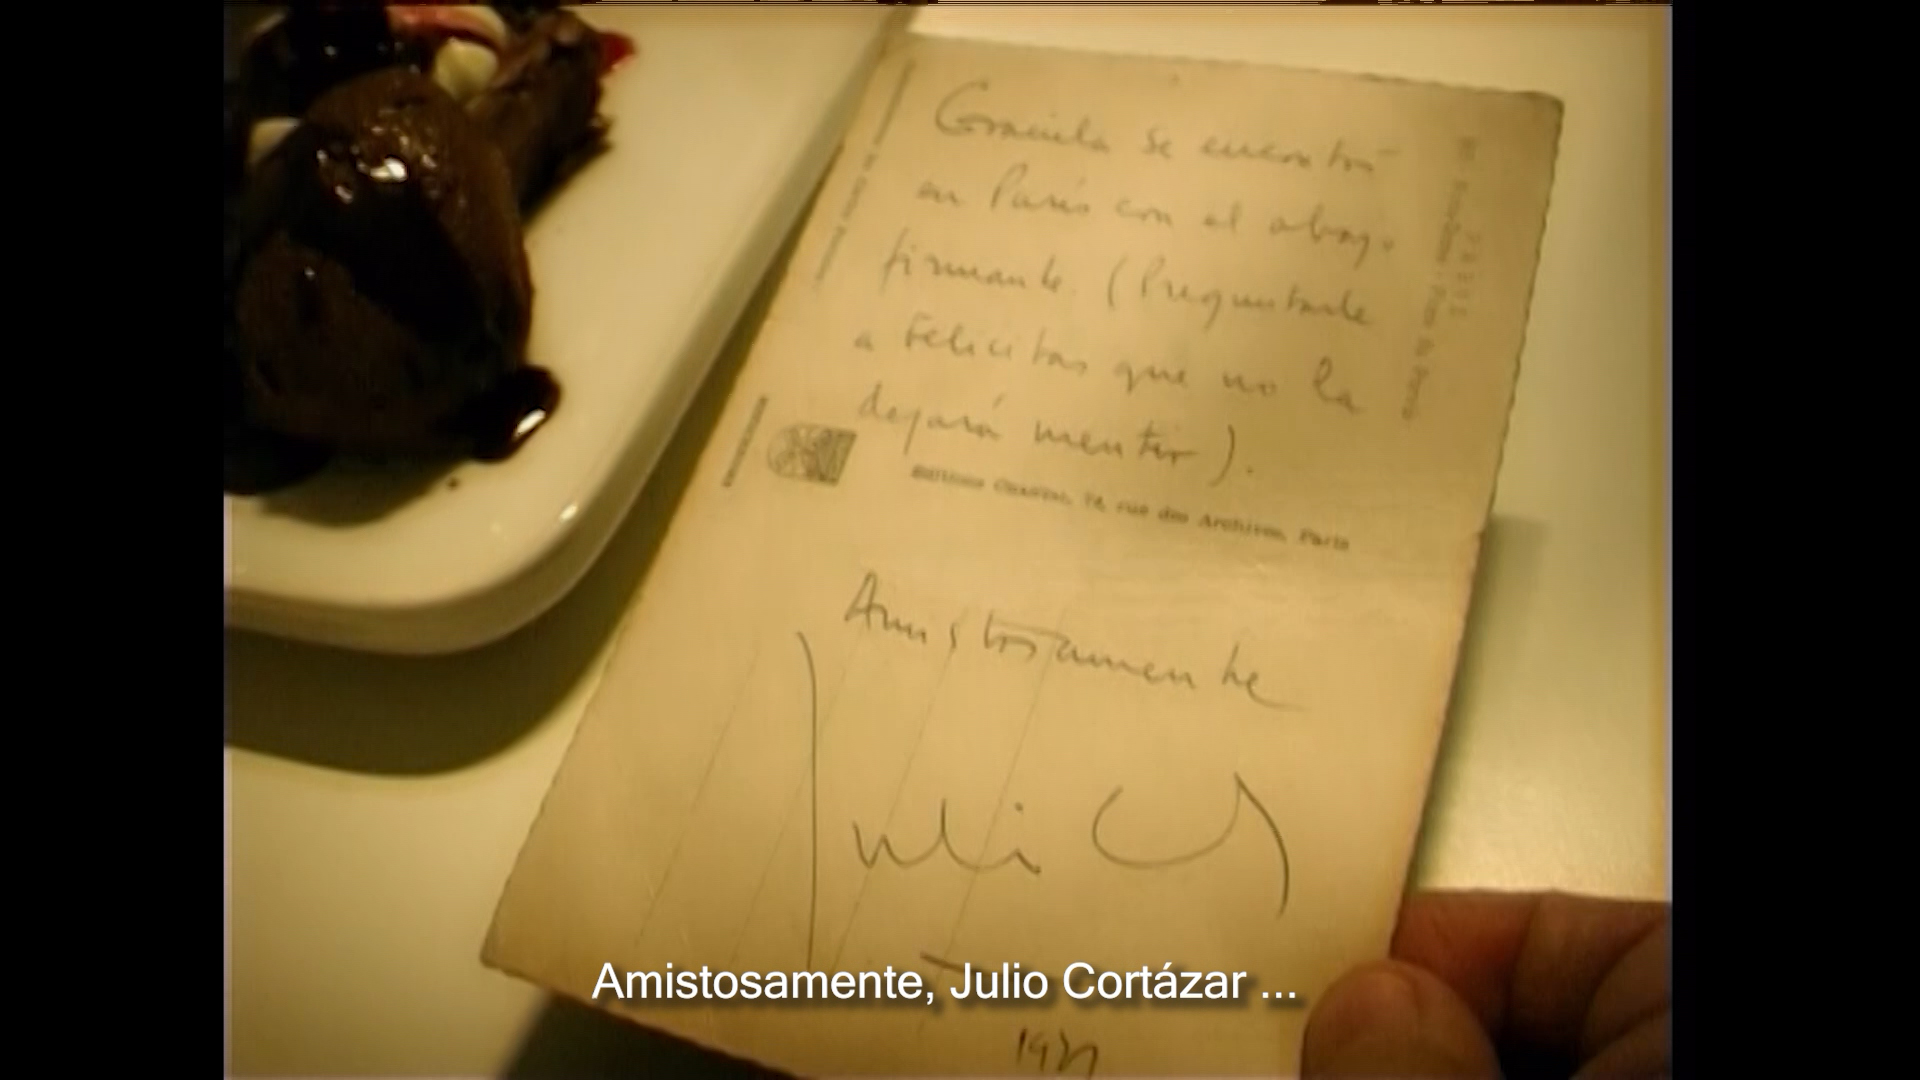 Graciela se encontró
en París con el abajo
firmante. (Preguntarle
a Felicitas que no la
dejará mentir).
Editions Chantal, 74, rue des Archives, Paris
Amistosamente
Julio C
Amistosamente, Julio Cortázar ...